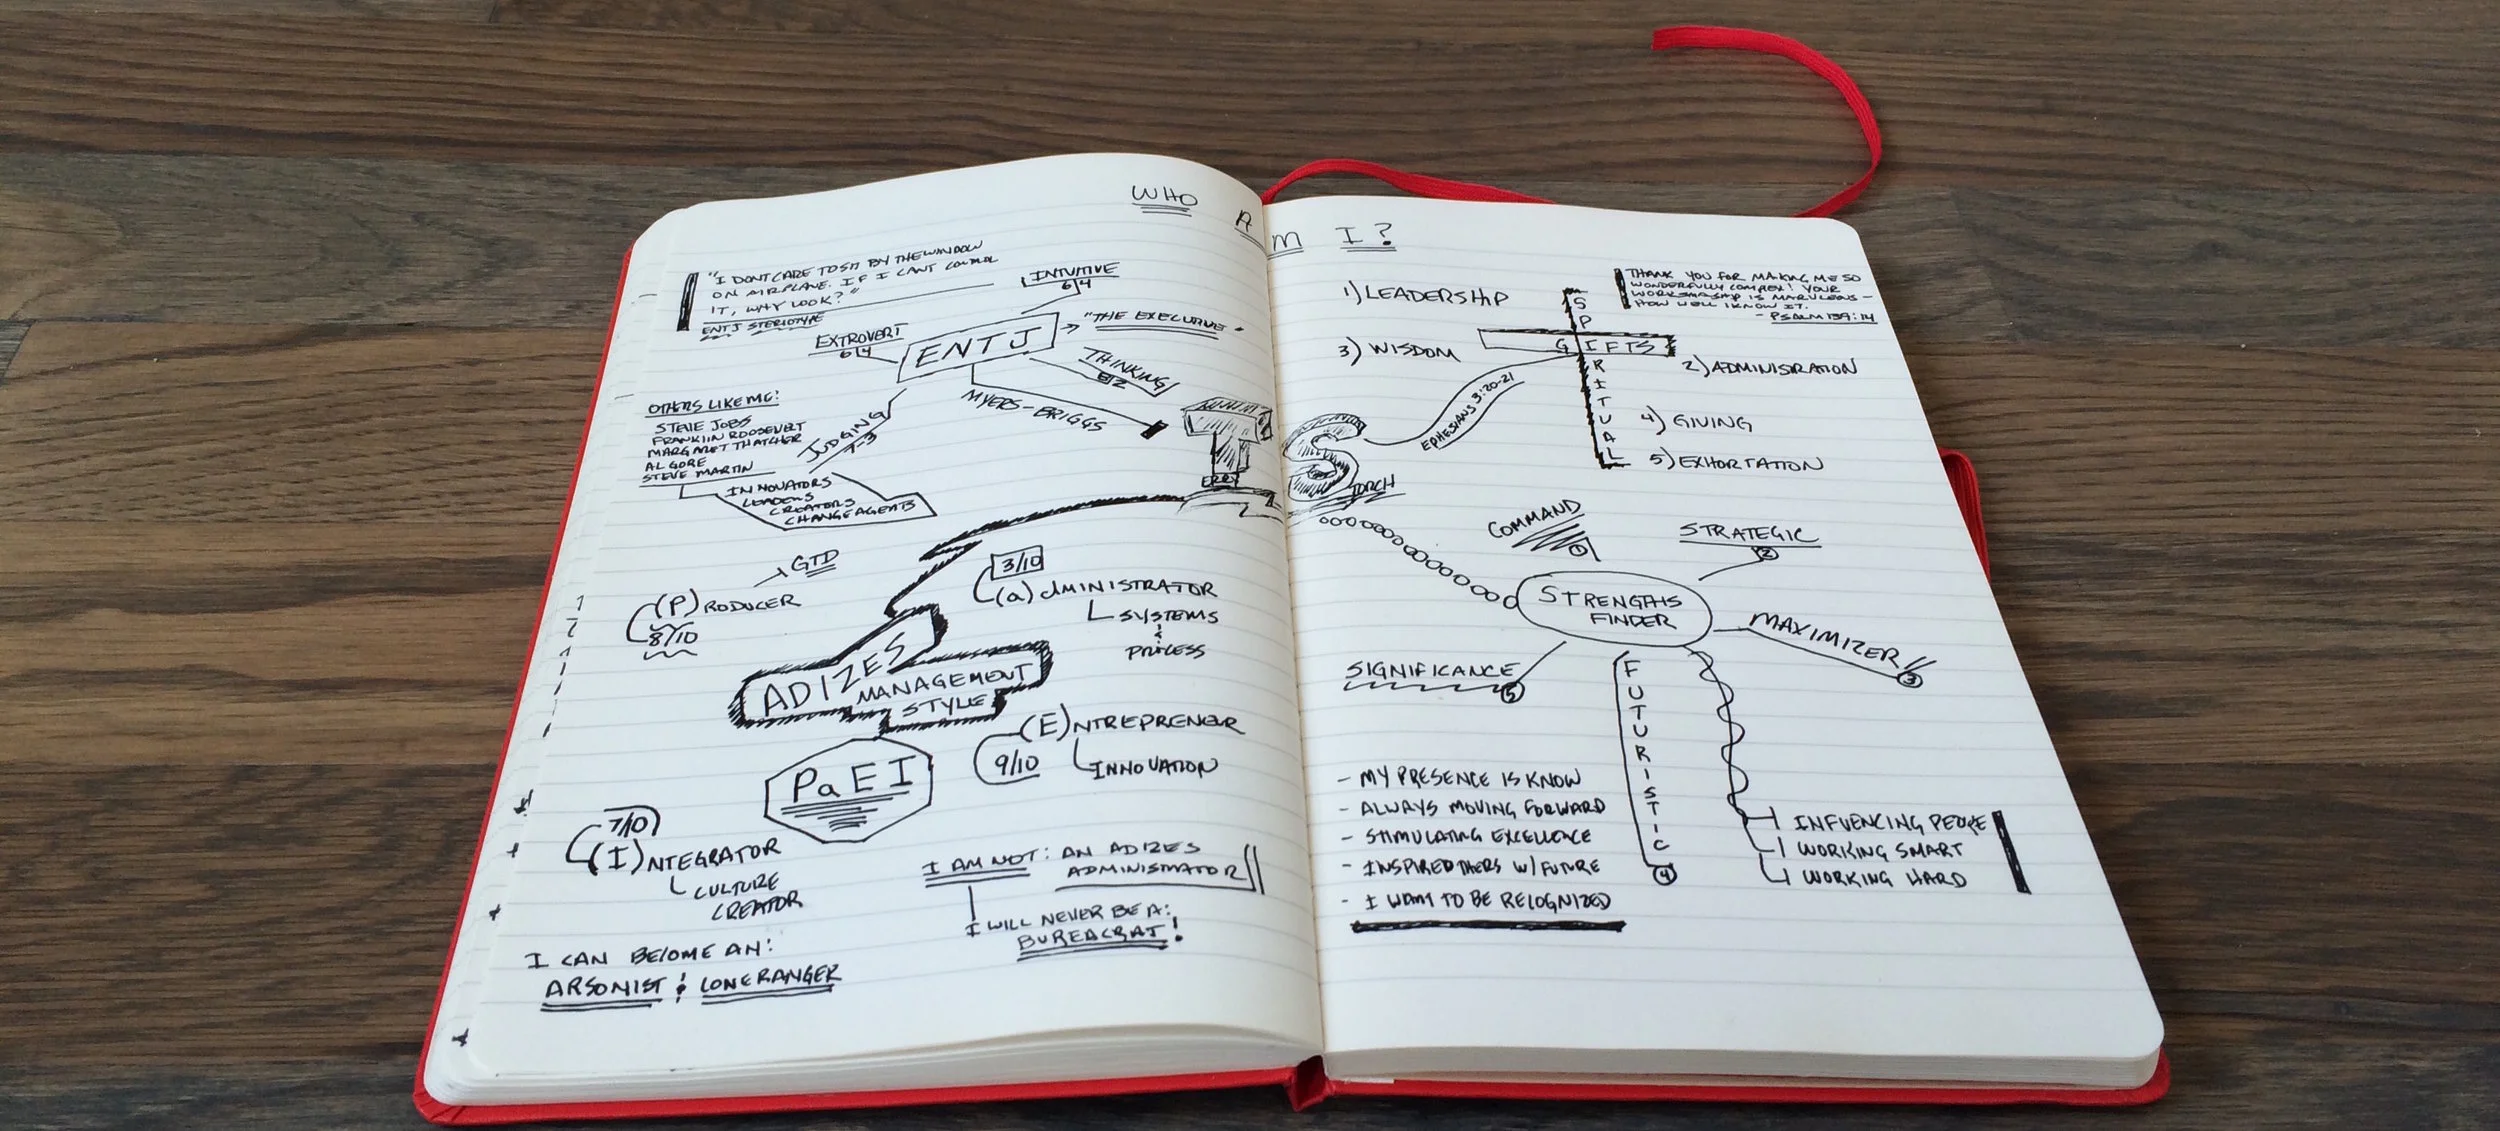 WHO AM I?
"I DONT CARE TO SIT BY THE WINDOW
ON AIRPLANE. IF I CAN'T CONTROL
IT, WHY LOOK?"
ENTJ STERIOTYPE
INTUITIVE
6|4
EXTROVERT
6|4
ENTJ
"THE EXECUTIVE"
THINKING
8|2
MYERS-BRIGGS
JUDGING
7-3
OTHERS LIKE ME:
STEVE JOBS
FRANKLIN ROOSEVERT
MARGARET THATCHER
AL GORE
STEVE MARTIN
INNOVATORS
LEADERS
CREATORS
CHANGE AGENTS
T
ERRY
S
TORCH
GTD
(P)RODUCER
8/10
3/10
(a)dMINISTRATOR
SYSTEMS
&
PROCESS
ADIZES
MANAGEMENT
STYLE
PaEI
(E)NTREPRENEUR
9/10
INNOVATION
7/10
(I)NTEGRATOR
CULTURE
CREATOR
I AM NOT: AN ADIZES
ADMINISTRATOR
I WILL NEVER BE A:
BUREACRAT!
I CAN BECOME AN:
ARSONIST & LONERANGER
THANK YOU FOR MAKING ME SO
WONDERFULLY COMPLEX! YOUR
WORKSMASHIP IS MARVLEOUS -
HOW WELL I KNOW IT.
- PSALM 139:14
1) LEADERSHIP
SPIRITUAL
GIFTS
3) WISDOM
2) ADMINISRATION
EPHESIANS 3:20-21
4) GIVING
5) EXHORTATION
COMMAND
1
STRATEGIC
2
STRENGTHS
FINDER
MAXIMIZER
3
SIGNIFICANCE
5
FUTURISTIC
4
- MY PRESENCE IS KNOW
- ALWAYS MOVING FORWARD
- STIMULATING EXCELLENCE
- INSPIRE OTHERS W/ FUTURE
- I WANT TO BE RELOGNIZED
INFVENCING PEOPLE
WORKING SMART
WORKING HARD